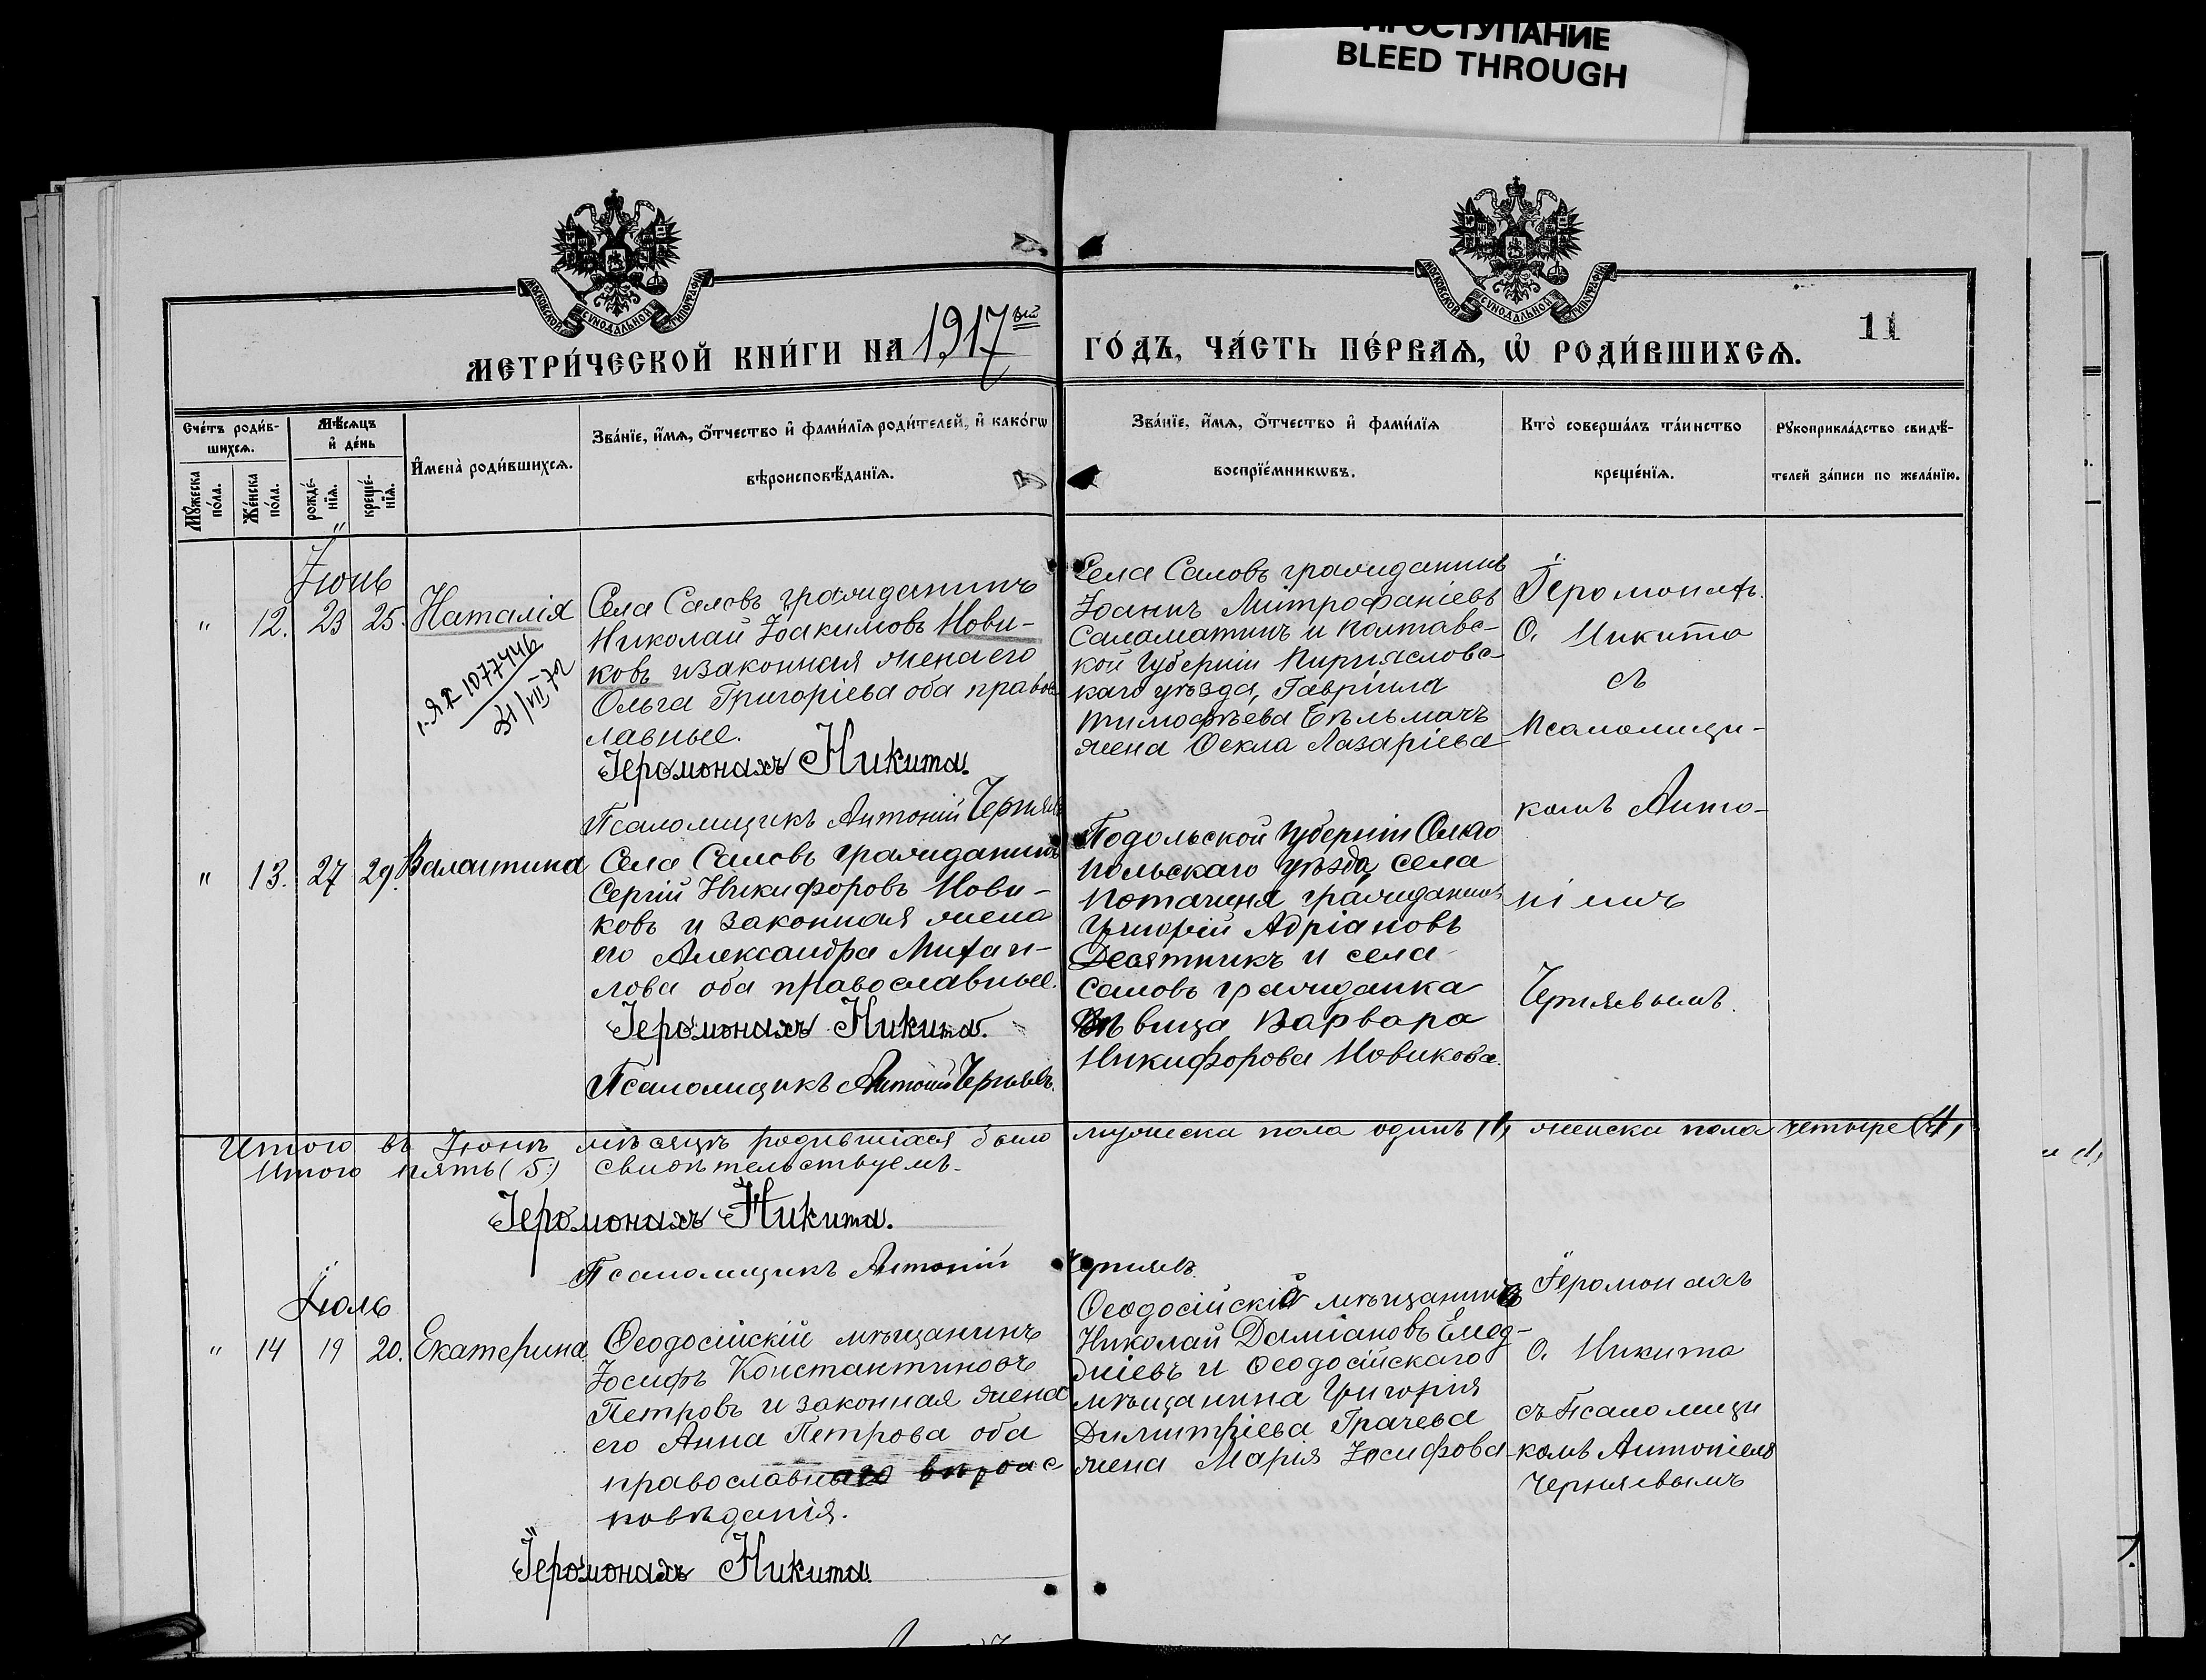 ПРОСТУПАНИЕ
BLEED THROUGH
МОСКОВСКОЙ СѴНОДАЛЬНОЙ ТИПОГРАФІИ
МОСКОВСКОЙ СѴНОДАЛЬНОЙ ТИПОГРАФІИ
11
МЕТРИ́ЧЕСКОЙ КНИ́ГИ НА 1917 ый ГО́ДЪ, ЧА́СТЬ ПЕ́РВАѦ, Ѡ҆ РОДИ́ВШИХСѦ.
Сче́тъ роди́в-
шихсѧ.
Мꙋ́жеска по́ла.
Же́нска по́ла.
Мѣ́сѧцъ
и҆ де́нь
рожде́-
нїѧ.
креще́-
нїѧ.
И҆мена̀ роди́вшихсѧ.
Зва́нїе, и҆́мѧ, ѻ҆́тчество и҆ фами́лїѧ роди́телей, и҆ како́гѡ
вѣроисповѣ́данїѧ.
Зва́нїе, и҆́мѧ, ѻ҆́тчество и҆ фами́лїѧ
воспрїе́мникѡвъ.
Кто̀ соверша́лъ та́инство
креще́нїѧ.
Рꙋкоприкла́дство свидѣ́-
телей за́писи по жела́нїю.
Іюнь
" 12. 23 25. Наталія
I-ЯЯ 1077446
21/VII 72
Села Саловъ гражданинъ
Николай Іоакимовъ Нови-
ковъ и законная жена его
Ольга Григоріева оба правос
лавные.
Іеромонахъ Никита.
Псаломщикъ Антоній Черняевъ
Села Саловъ гражданинъ
Іоаннъ Митрофаніевъ
Саламатинъ и Полтавс-
кой Губерніи Пиряясловс-
каго уѣзда, Гавріила
Тимофѣева Бѣльмачъ
жена Ѳекла Лазаріева
Іеромонахъ.
О. Никита
съ
Псаломщи-
комъ Анто-
ніемъ
Чернявымъ.
" 13. 27 29. Валантина
Села Саловъ гражданинъ
Сергій Никифоровъ Нови-
ковъ и законная жена
его Александра Михаи-
лова оба православные.
Іеромонахъ Никита.
Псаломщикъ Антоній Черняевъ.
Подольской Губерніи Ольго
польскаго уѣзда, села
гражданинъ
Григорій Адріановъ
Десятникъ и села
Саловъ гражданка
дѣвица Варвара
Никифорова Новикова.
Итого въ Іюнѣ мѣсяцѣ родившіхся было мужеска пола одинъ (1, женска пола четыре (4,
Итого пять (5.) свидѣтельствуемъ.
Іеромонахъ Никита.
Псаломщикъ Антоній Черняевъ
Іюль
" 14 19 20. Екатерина
Ѳеодосійскій мѣщанинъ
Іосифъ Константиновъ
Петровъ и законная жена
его Анна Петрова оба
православнаго вѣроис
повѣданія.
Іеромонахъ Никита.
Ѳеодосійскій мѣщанинъ
Николай Даміановъ
и Ѳеодосійскаго
мѣщанина Григорія
Димитріева Грачева
жена Марія Іосифова
Іеромонахъ
О. Никита
съ Псаломщи
комъ Антоніемъ
Чернявымъ